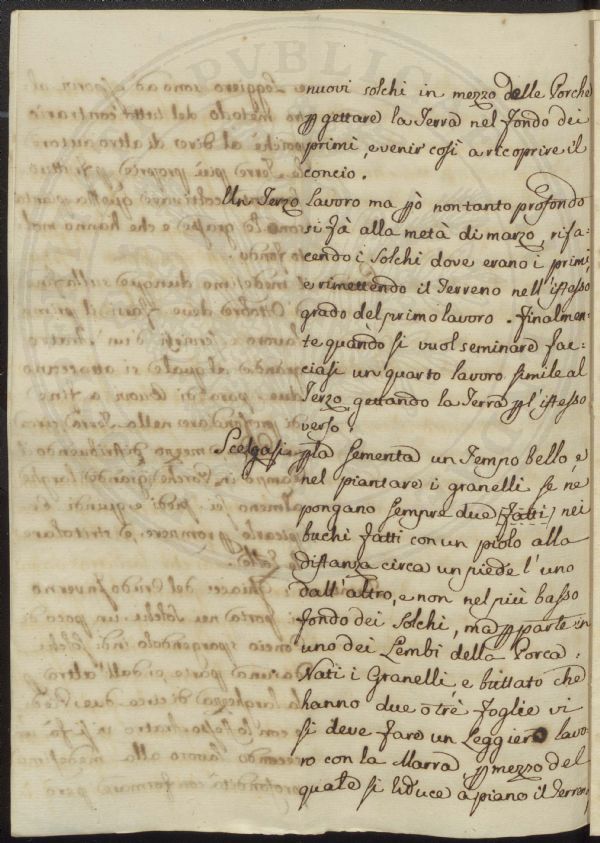 nuovi solchi in mezzo delle Porche
p gettare la Terra nel fondo dei
primi, e venir così a ricoprire il
concio.
Un Terzo lavoro ma pò non tanto profondo
si fà alla metà di marzo, rifa-
cendo i Solchi dove erano i primi,
e rimettendo il Terreno nell'istesso
grado del primo lavoro. Finalmen-
te quando si vuol seminare fac-
ciasi un quarto lavoro simile al
Terzo gettando la Terra p l'istesso
verso.
Scelgasi p la sementa un Tempo bello, e
nel piantare i granelli se ne
pongano sempre due (fatti) nei
buchi fatti con un piolo alla
distanza circa un piede l'uno
dall'altro, e non nel più basso
fondo dei Solchi, ma p parte in
uno dei Lembi della Porca.
Nati i Granelli, e buttato che
hanno due o trè foglie vi
si deve fare un Leggiero lavo-
ro con la Marra p mezzo del
quale si riduce a piano il Terreno